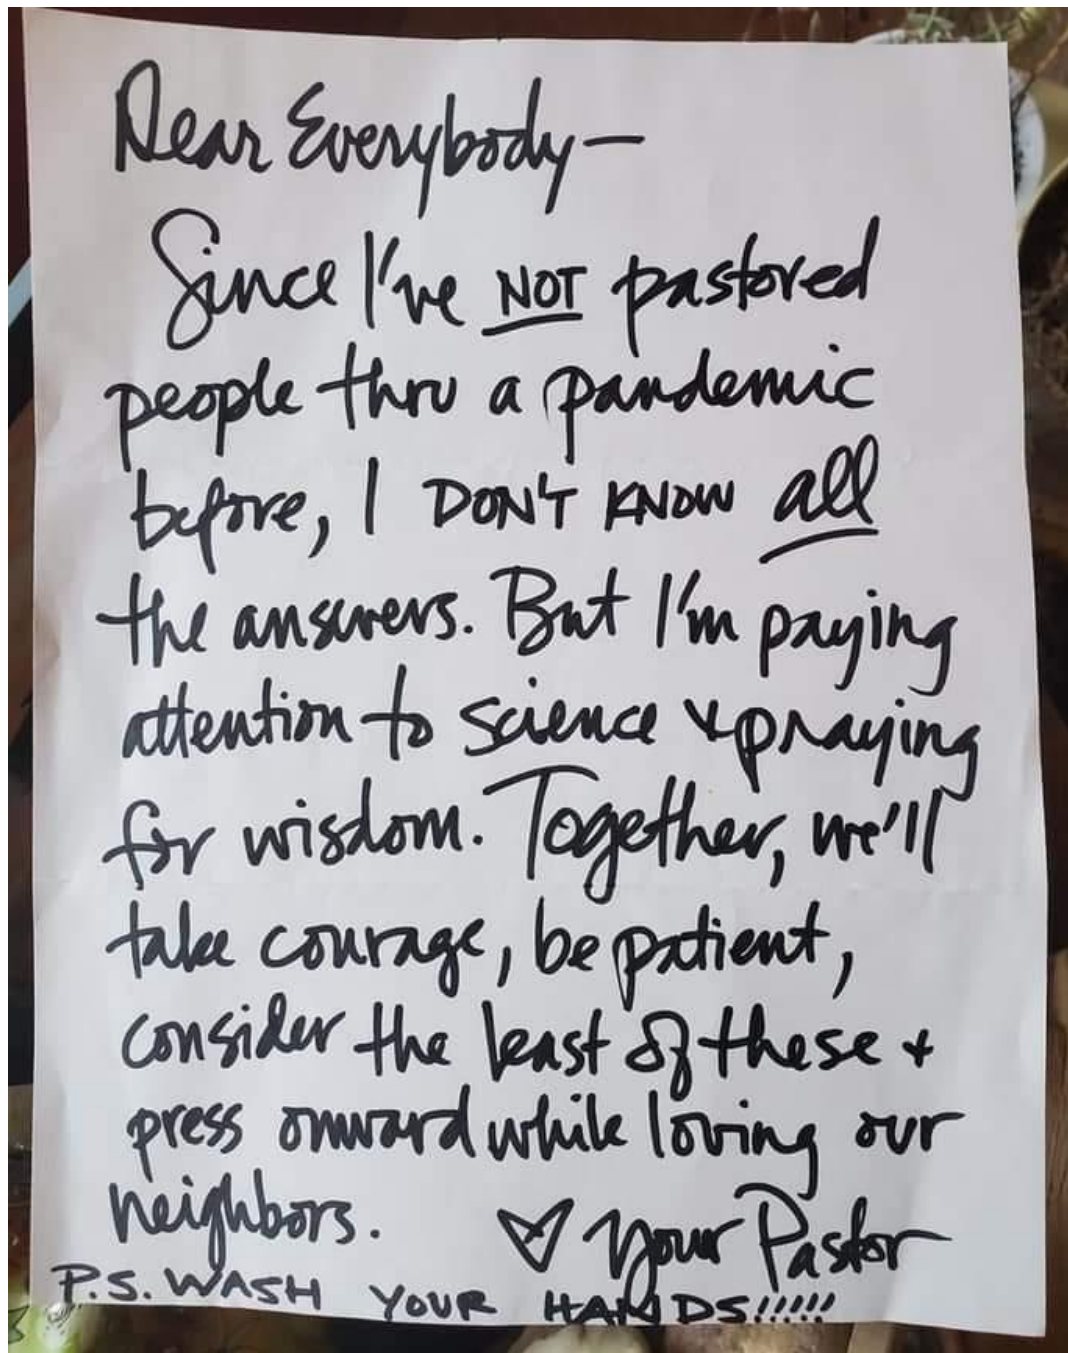 Dear Everybody—
Since I've NOT pastored
people thru a pandemic
before, I DON'T KNOW all
the answers. But I'm paying
attention to science & praying
for wisdom. Together, we'll
take courage, be patient,
consider the least of these +
press onward while loving our
neighbors. ♡ Your Pastor
P.S. WASH YOUR HANDS!!!!!